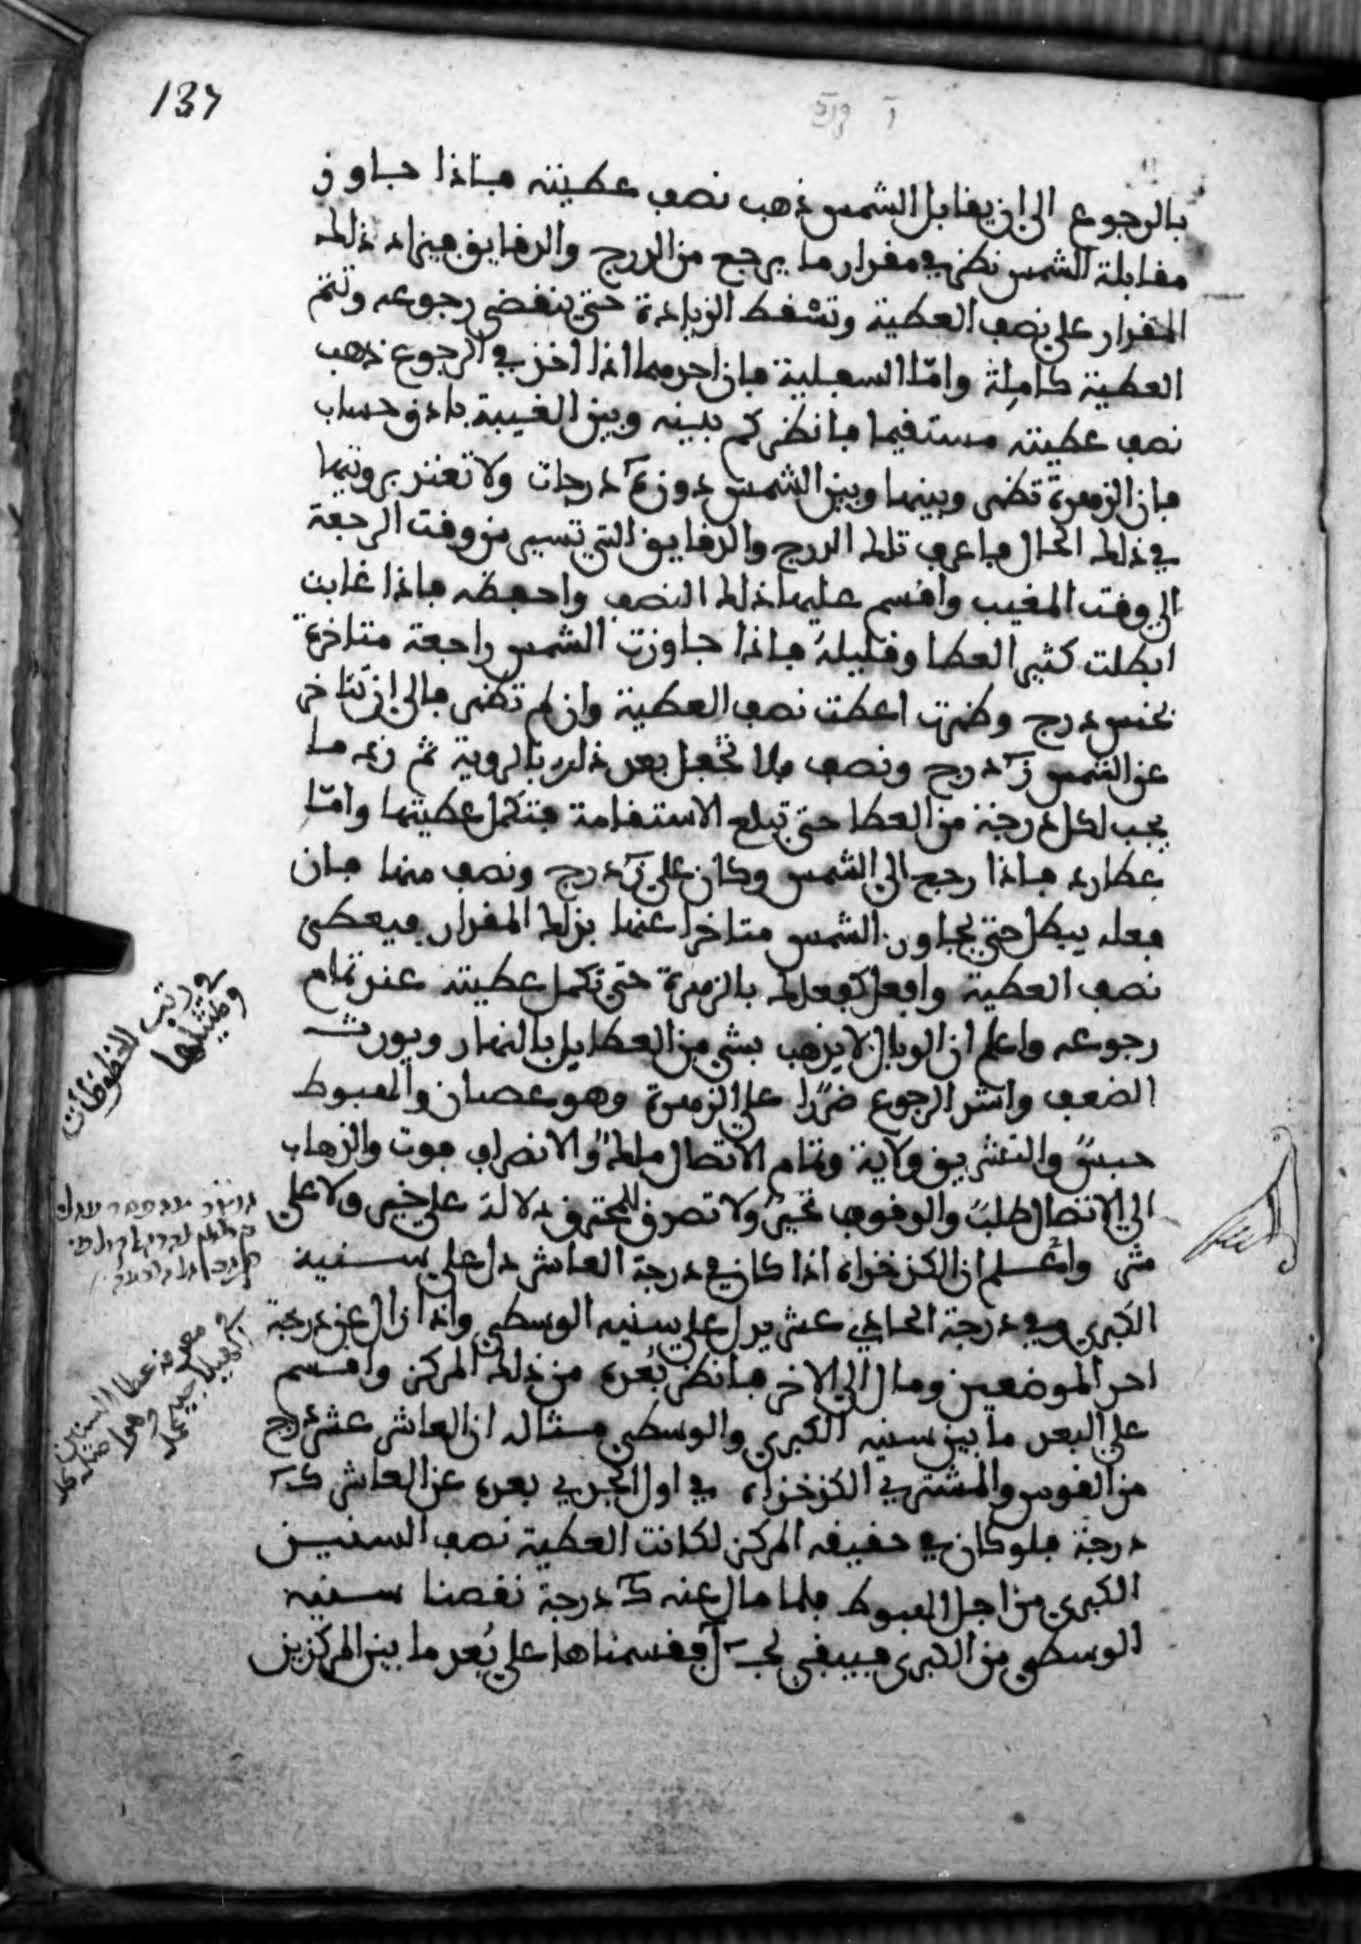 137
بالرجوع الى ان يقابل الشمس ذهب نصف عطيته فاذا جاوز
مقابلة الشمس نظر في مقدار ما يرجع من الدرج والدقايق فيزاد ذلك
المقدار على نصف العطية وتسقط الزيادة حتى ينقضي رجوعه وتتم
العطية كاملة وامّا السفلية فان احدهما اذا اخذ في الرجوع ذهب
نصف عطيته مستقيما فانظر كم بينه وبين الغيبة بادق حساب
فان الزهرة تظهر وبينها وبين الشمس دون درجات ولا تغتر برويتها
في ذلك الحال فاعرف تلك الدرج والدقايق التي تسير من وقت الرجعة
الى وقت المغيب واقسم عليها ذلك النصف واحفظه فاذا غابت
ابطلت كثير العطا وقليله فاذا جاوزت الشمس راجعة متاخرة
بخمس درج وظهرت اعطت نصف العطية وان لم تظهر فالى ان تتاخر
عن الشمس ز درج ونصف فلا تحفل بعد ذلك بالروية ثم زد ما
يجب لكل درجة من العطا حتى تبلغ الاستقامة فتكمل عطيتها وامّا
عطارد فاذا رجع الى الشمس وكان على ز درج ونصف منها فان
فعله يبطل حتى يجاوز الشمس متاخرا عنها بذلك المقدار فيعطى
نصف العطية وافعل كفعلك بالزهرة حتى تكمل عطيته عند تمام
رجوعه واعلم ان الوبال لا يذهب بشي من العطايا بل بالنهار ويورث
الضعف واشد الرجوع ضرّا على الزهرة وهو عصيان والهبوط
حبسٌ والتشريق ولاية وتمام الاتصال ملكٌ والانصراف موت والذهاب
الى الاتصال طلبٌ والوقوف تحيّر ولا تصرف للمحترق دلالة على خير ولا على
شر واعلم ان الكذخذاه اذا كان في درجة العاشر دل على سنيه
الكبرى وفي درجة الحادي عشر يدل على سنيه الوسطى واذا زال عن درجة
احد الموضعين ومال الى الاخر فانظر بُعده من ذلك المركز واقسم
على البعد ما بين سنيه الكبرى والوسطى مثاله ان العاشر عشر درج
من القوس والمشتري الكذخذاه في اول الجدي بعده عن العاشر ك
درجة فلو كان في حقيقة المركز لكانت العطية نصف السنين
الكبرى من اجل الهبوط فلما مال عنه ك درجة نقصنا سنيه
الوسطى من الكبرى فيبقى لج ل فقسمناها على بُعد ما بين المركزين
ورتب الحظوظات
ومثلها
معرفة عطا السنين